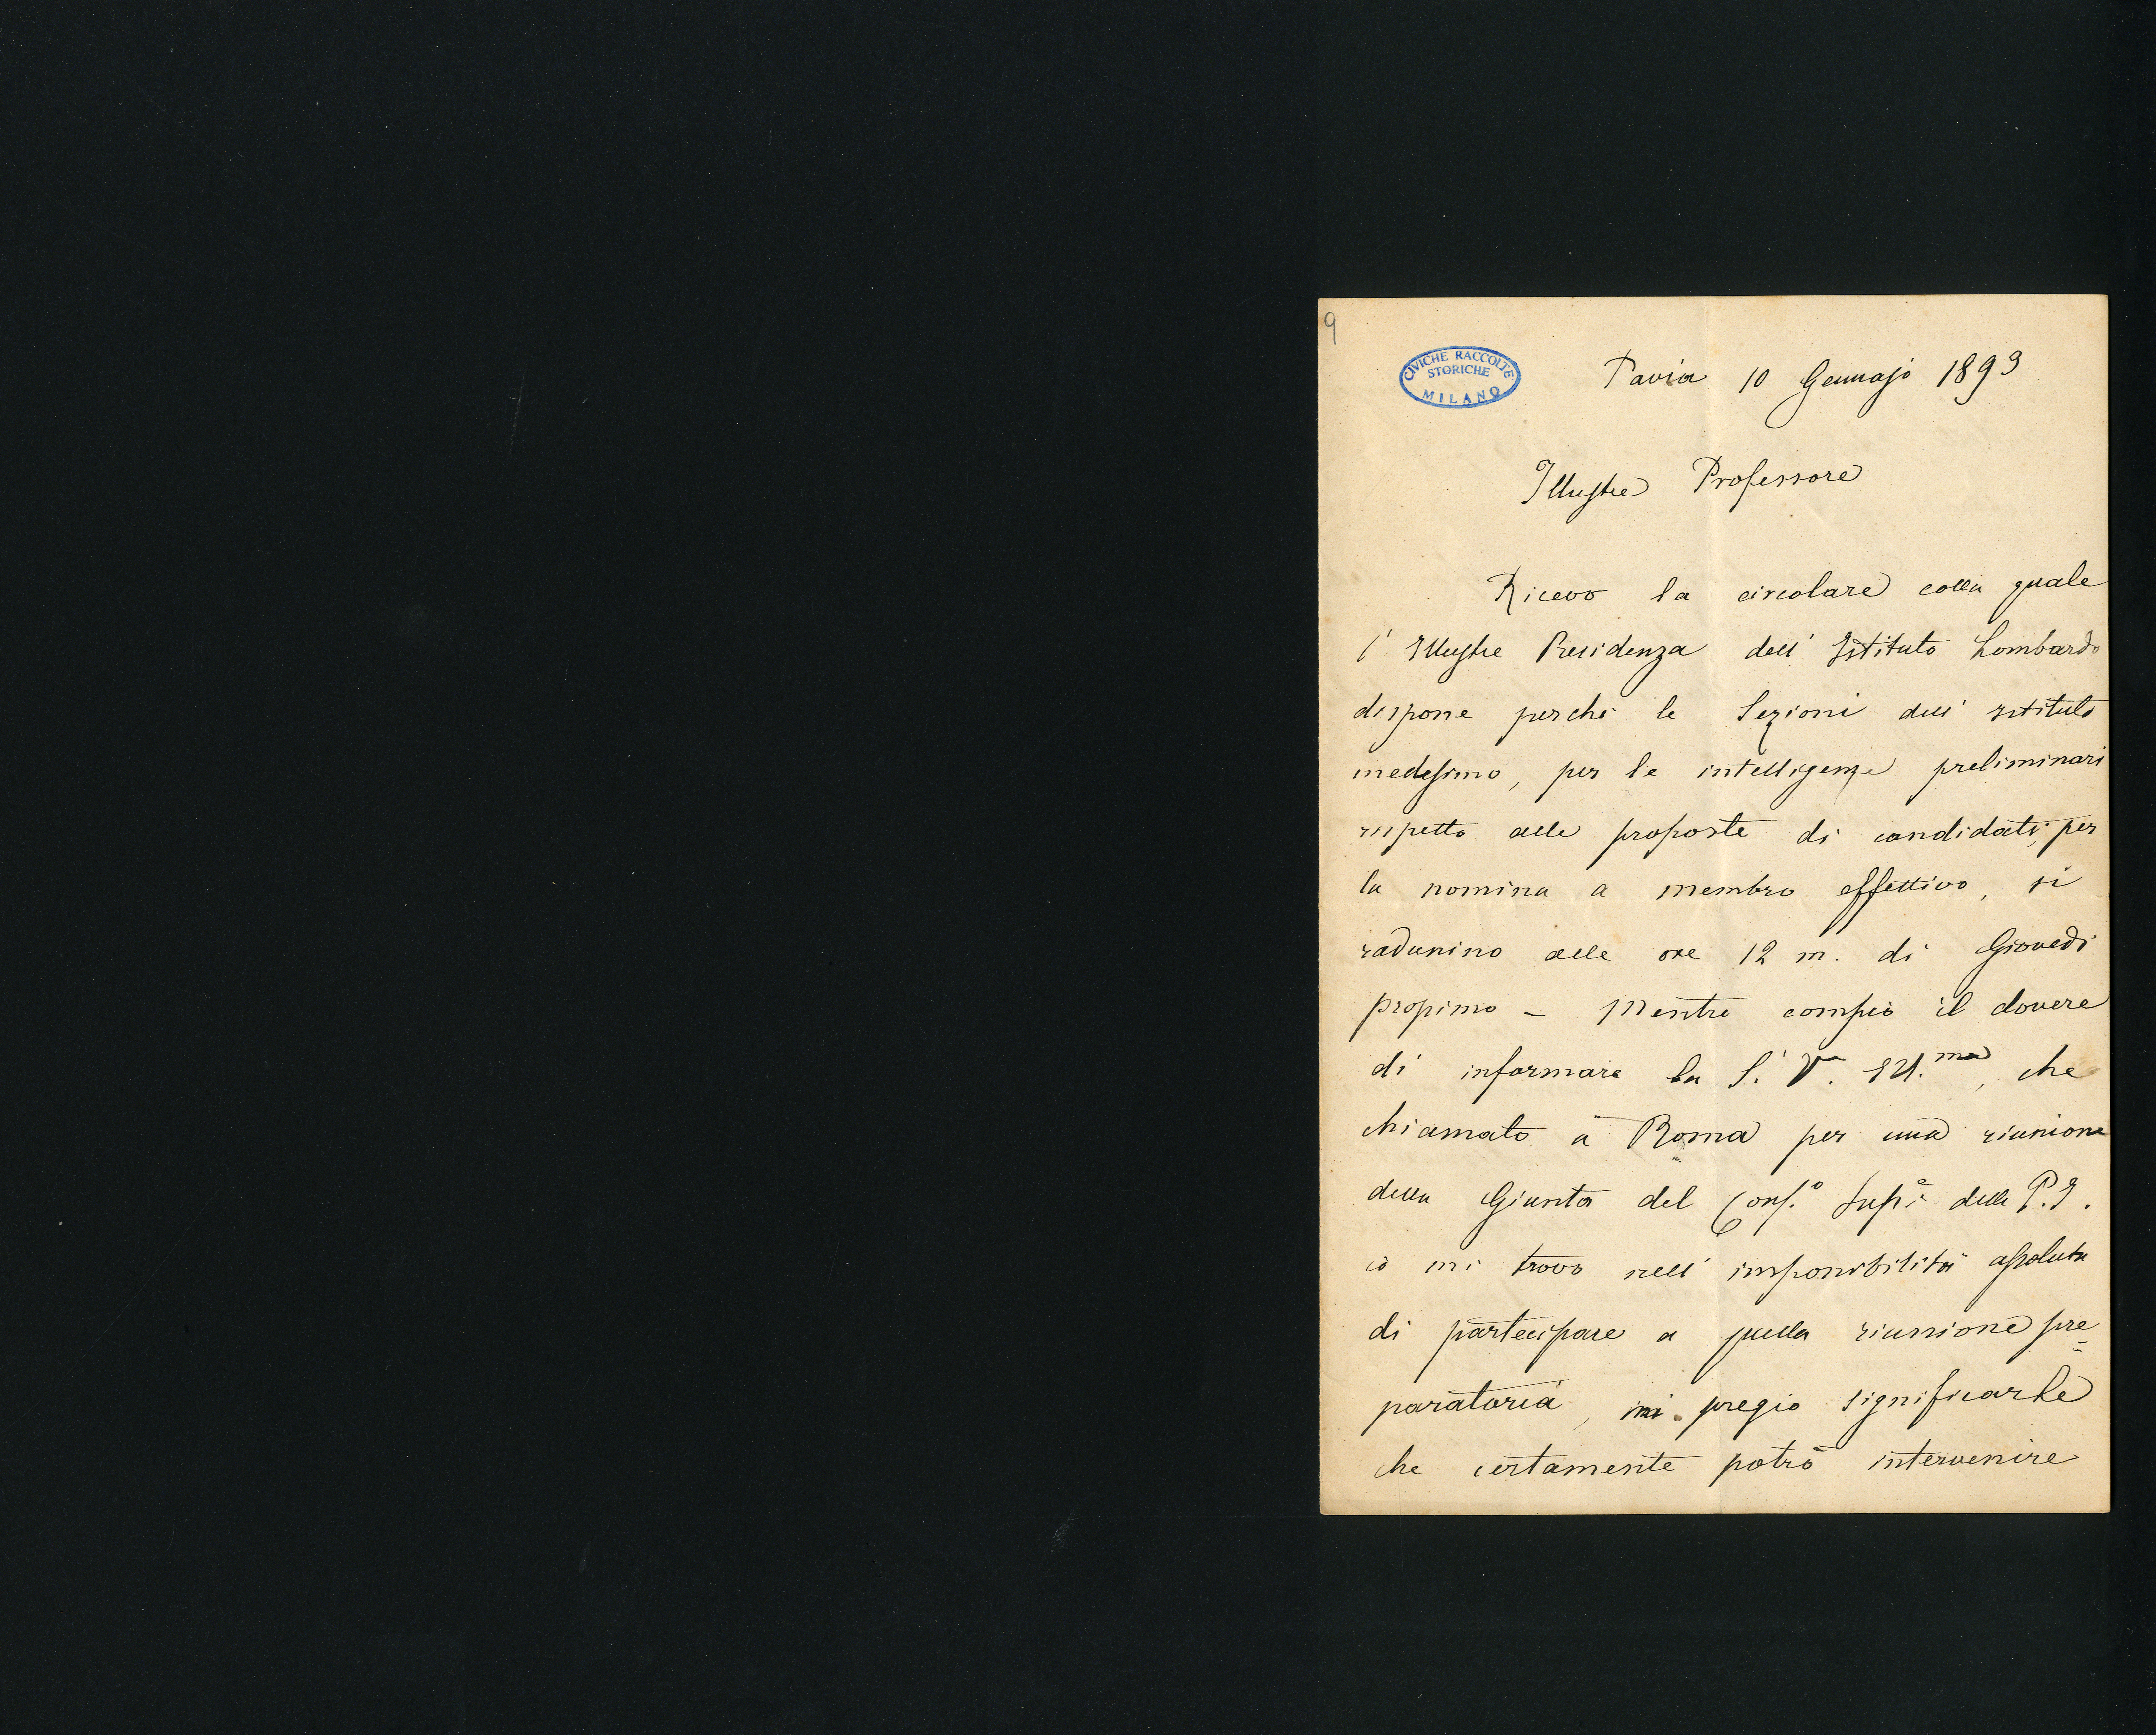 9
CIVICHE RACCOLTE
STORICHE
MILANO
Pavia 10 Gennajo 1893
Illustre Professore
Ricevo la circolare colla quale
l' Illustre Presidenza dell' Istituto Lombardo
dispone perchè le Sezioni dell' Istituto
medesimo, per le intelligenze preliminari
rispetto alle proposte di candidati, per
la nomina a membro effettivo, si
radunino alle ore 12 m. di Giovedì
prossimo – Mentre compio il dovere
di informare la S. V. Ill.ma, che
chiamato a Roma per una riunione
della Giunta del Cons.o Sup.e della P. I.
io mi trovo nell' impossibilità assoluta
di partecipare a quella riunione pre=
paratoria, mi pregio significarle
che certamente potrò intervenire